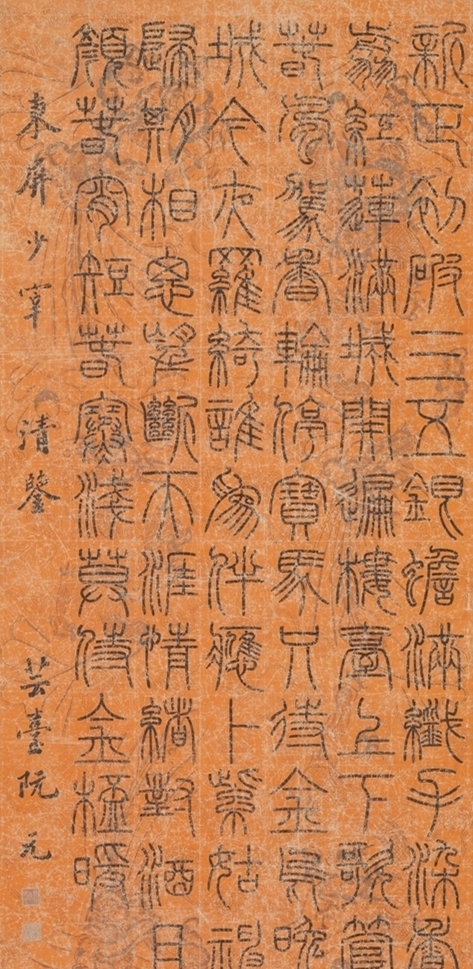 新正初破三五銀蟾滿纖手染香
剪紅蓮滿城開遍樓臺上下歌管
春風駕香輪停寶馬只待金烏晚
城今夜羅綺誰為伴應卜紫姑神
歸期相思望斷天涯情緒對酒且
顏春宵短春寒淺莫待金杯暖
東屏少宰 清鑒 芸臺阮元